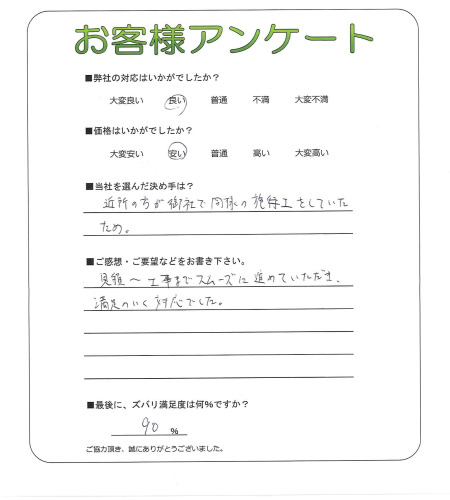 お客様アンケート
■弊社の対応はいかがでしたか？
大変良い 良い 普通 不満 大変不満
■価格はいかがでしたか？
大変安い 安い 普通 高い 大変高い
■当社を選んだ決め手は？
近所の方が御社で同様の 工をしていた
ため。
■ご感想・ご要望などをお書き下さい。
見積〜工事までスムーズに進めていただき、
満足のいく対応でした。
■最後に、ズバリ満足度は何%ですか？
90 %
ご協力頂き、誠にありがとうございました。